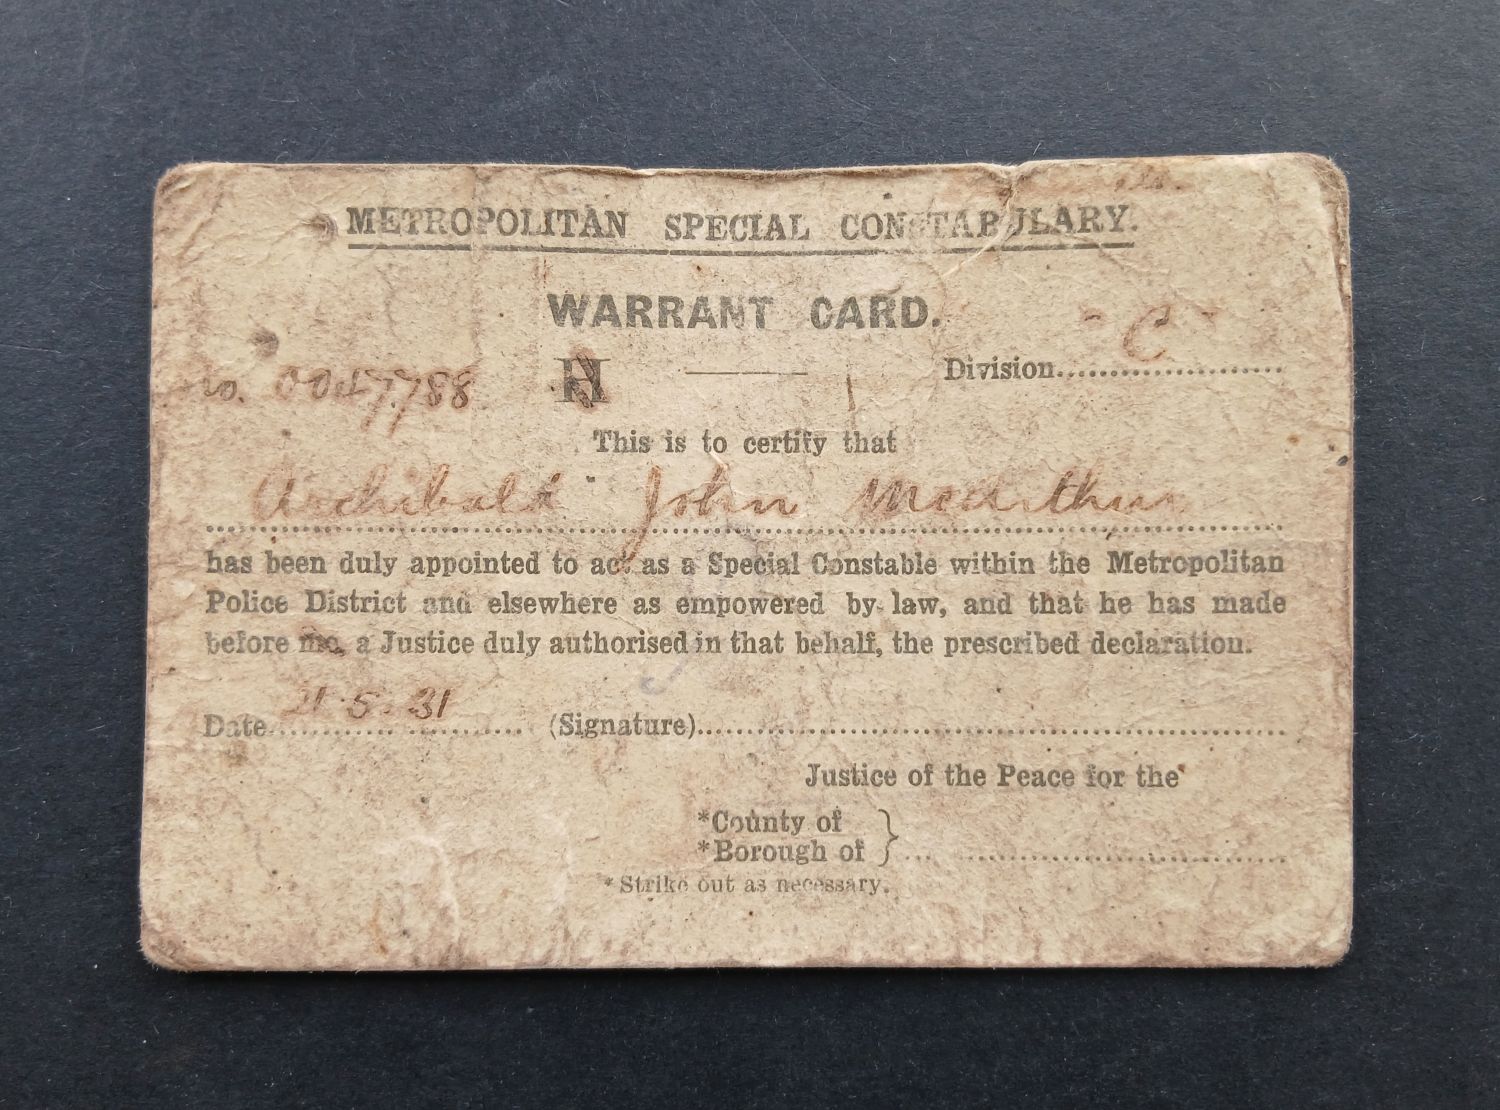 METROPOLITAN SPECIAL CONSTABULARY.
WARRANT CARD.
No. 0047788 H Division - C -
This is to certify that
Archibald John McArthur
has been duly appointed to act as a Special Constable within the Metropolitan
Police District and elsewhere as empowered by law, and that he has made
before me, a Justice duly authorised in that behalf, the prescribed declaration.
Date 21.5.31 (Signature)
Justice of the Peace for the
*County of }
*Borough of }
*Strike out as necessary.